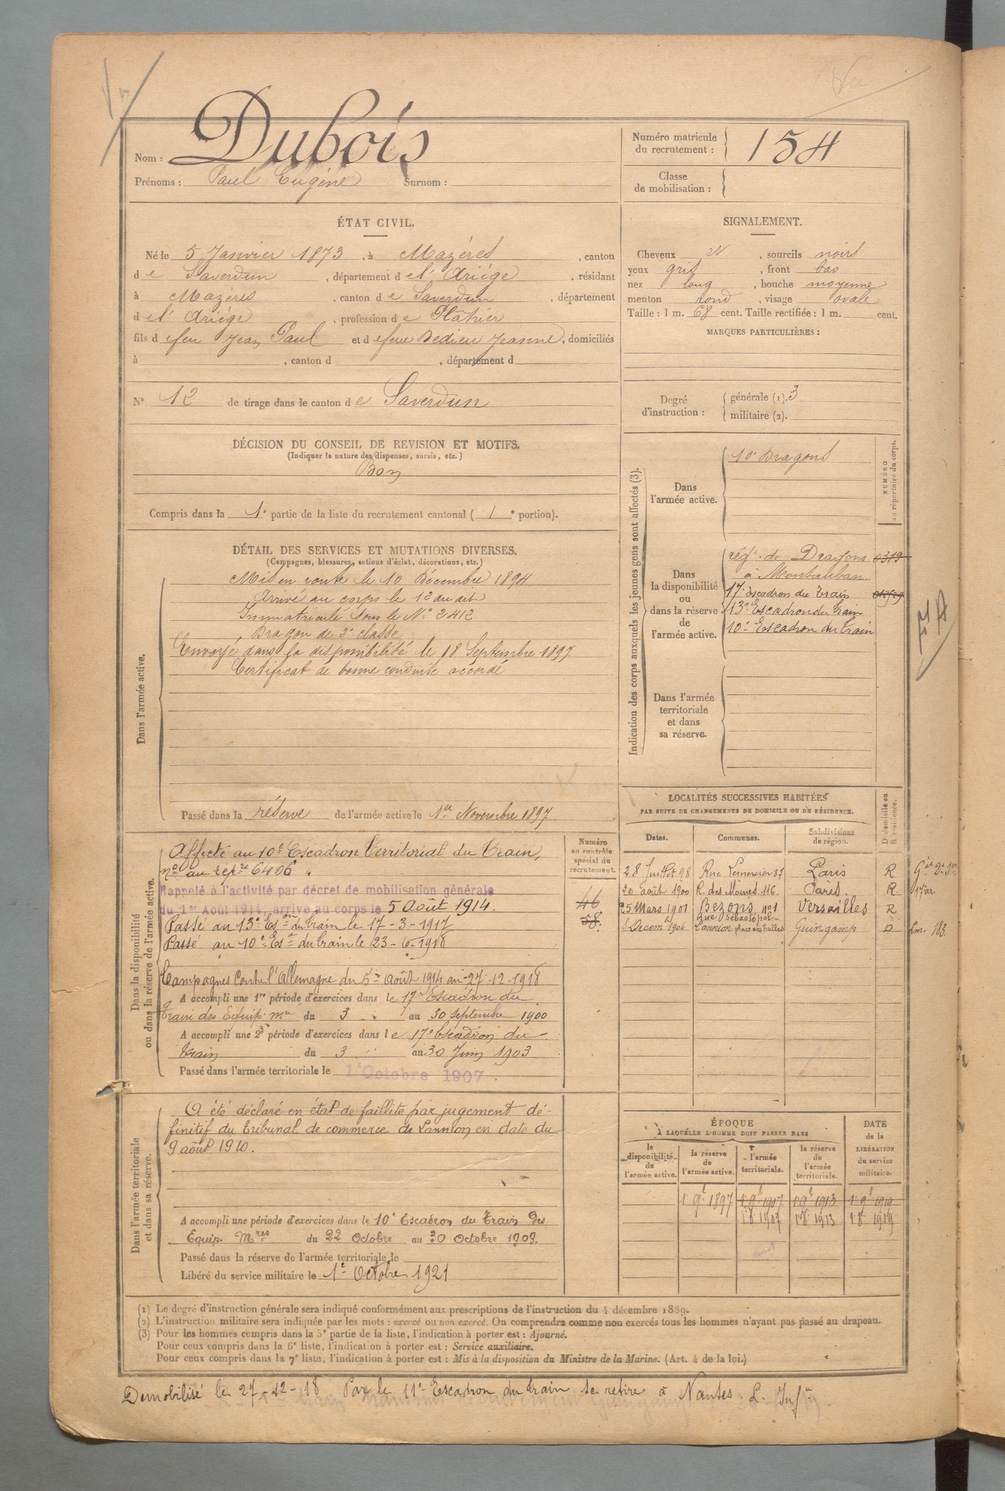 Nom : Dubois
Prénoms : Paul Eugène Surnom :
Numéro matricule
du recrutement : 154
Classe
de mobilisation :
ÉTAT CIVIL.
Né le 5 Janvier 1873, à Mazères, canton
de Saverdun, département de l'Ariège, résidant
à Mazères, canton de Saverdun, département
de l'Ariège, profession de Plâtrier
fils d feu Jean Paul et d feue Dedieu Jeanne, domiciliés
à , canton d , département d
N° 12 de tirage dans le canton de Saverdun
DÉCISION DU CONSEIL DE REVISION ET MOTIFS.
(Indiquer la nature des dispenses, sursis, etc.)
Bon
Compris dans la 1e partie de la liste du recrutement cantonal ( 1 e portion).
SIGNALEMENT.
Cheveux , sourcils noirs
yeux gris, front bas
nez long, bouche moyenne
menton rond, visage ovale
Taille : 1 m. 68 cent. Taille rectifiée : 1 m. cent.
MARQUES PARTICULIÈRES :
Degré
d'instruction :
générale (1). 3
militaire (2).
DÉTAIL DES SERVICES ET MUTATIONS DIVERSES.
(Campagnes, blessures, actions d'éclat, décorations, etc.)
Dans l'armée active.
Mis en route le 10 Décembre 1894
Arrivé au corps le 12 au dit
Immatriculé sous le N° 2412
Dragon de 2e classe
Envoyé dans la disponibilité le 18 Septembre 1897
Certificat de bonne conduite accordé
Passé dans la réserve de l'armée active le 1er Novembre 1897
Indication des corps auxquels les jeunes gens sont affectés (3).
NUMÉRO
au répertoire du corps.
Dans
l'armée active.
10e Dragons
Dans
la disponibilité
ou
dans la réserve
de
l'armée active.
rég. de Dragons
à Montauban
17e Escadron du train
13e Escadron du train
10e Escadron du train
Dans l'armée
territoriale
et dans
sa réserve.
Dans la disponibilité
ou dans la réserve de l'armée active.
Affecté au 10e Escadron territorial du Train,
no au rép.re 6406
Rappelé à l'activité par décret de mobilisation générale
du 1er Août 1914, arrivé au corps le 5 Août 1914.
Passé au 13e Esc. du train le 17-3-1917
Passé au 10e Esc. du train le 23-6-1918
Campagnes Contre l'Allemagne du 5 août 1914 au 27-12-1918
A accompli une 1re période d'exercices dans le 17e Escadron du
train des Équip. mres du 3 au 30 septembre 1900
A accompli une 2e période d'exercices dans le 17e Escadron du
train du 3 au 30 Juin 1903
Passé dans l'armée territoriale le 1er Octobre 1907.
Numéro
au contrôle
spécial du
recrutement.
LOCALITÉS SUCCESSIVES HABITÉES
PAR SUITE DE CHANGEMENTS DE DOMICILE OU DE RÉSIDENCE.
Dates. Communes. Subdivisions
de région.
28 Juillet 98 Paris R
20 Août 1900 R. des Moines 116 Paris. R
25 Mars 1901 Bezons Versailles R
Décem 1906 Lannion Guingamp D
Dans l'armée territoriale
et dans sa réserve.
A été déclaré en état de faillite par jugement dé-
finitif du tribunal de commerce de Lannion en date du
9 août 1910.
A accompli une période d'exercices dans le 10e Escadron du Train des
Equip. Mres du 22 Octobre au 30 Octobre 1909.
Passé dans la réserve de l'armée territoriale le
Libéré du service militaire le 1er Octobre 1921
ÉPOQUE
À LAQUELLE L'HOMME DOIT PASSER DANS
DATE
de la
LIBÉRATION
du service
militaire.
la
disponibilité
de
l'armée active.
la réserve
de
l'armée active.
l'armée
territoriale.
la réserve
de
l'armée
territoriale.
(1) Le degré d'instruction générale sera indiqué conformément aux prescriptions de l'instruction du 4 décembre 1889.
(2) L'instruction militaire sera indiquée par les mots : exercé ou non exercé. On comprendra comme non exercés tous les hommes n'ayant pas passé au drapeau.
(3) Pour les hommes compris dans la 5e partie de la liste, l'indication à porter est : Ajourné.
Pour ceux compris dans la 6e liste, l'indication à porter est : Service auxiliaire.
Pour ceux compris dans la 7e liste, l'indication à porter est : Mis à la disposition du Ministre de la Marine. (Art. 4 de la loi.)
Démobilisé le 27-12-18 Par le 11e Escadron du train se retire à Nantes